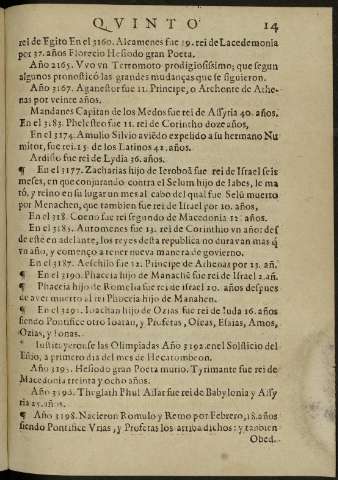 QVINTO 14
rei de Egito En el 3160. Alcamenes fue 19. rei de Lacedemonia
por 37. años Florecio Hesiodo gran Poeta.
Año 2165. Vvo vn Terromoto prodigiosissimo; que segun
algunos pronosticó las grandes mudanças que se siguieron.
Año 3167. Aganestor fue 11. Principe, o Archonte de Athe-
nas por veinte años.
Mandanes Capitan de los Medos fue rei de Assyria 40. años,
En el 3183. Phelesteo fue 11. rei de Corintho doze años,
En el 3174. Amulio Silvio aviēdo expelido a su hermano Nu
mitor, fue rei. 15. de los Latinos 42. años.
Ardiso fue rei de Lydia 36. años.
¶ En el 3177. Zacharias hijo de Ieroboã fue rei de Israel seis
meses, en que conjurando contra el Selum hijo de Iabes, le ma
tó, y reino en su lugar un mes al cabo del qual fue Selū muerto
por Menachen, que tambien fue rei de Israel por 10. años,
En el 318. Coeno fue rei segundo de Macedonia 12. años.
En el 3183. Autromenes fue 13. rei de Corinthio vn año: des
de este en adelante, los reyes desta republica no duravan mas q̄
vn año, y començo a tener nueva manera de govierno.
En el 3187. Aeschilo fue 12. Principe de Athenas por 23. añ.
¶ En el 3190. Phaceia hijo de Manachē fue rei de Israel 2. añ.
¶ Phaceia hijo de Romelia fue rei de Israel 20. años despues
de aver muerto al rei Phaceia hijo de Manahen.
¶ En el 3291. Ioachan hijo de Ozias fue rei de Iuda 16. años
siendo Pontifice otro Ioatan, y Profetas, Oseas, Esaias, Amos,
Ozias, y Ionas.
Instituyeronse las Olimpiadas Año 3192. en el Solsticio del
Estio, a primero dia del mes de Hecatombeon.
Año 3195. Hesiodo gran Poeta murio. Tyrimante fue rei de
Macedonia treinta y ocho años.
Año 3196. Theglath Phul Assar fue rei de Babylonia y Assy
ria 25. años.
¶ Año 3198. Nacieron Romulo y Remo por Febrero, 18. años
siendo Pontifice Vrias, y Profetas los arriba dichos: y tambien
Obed.